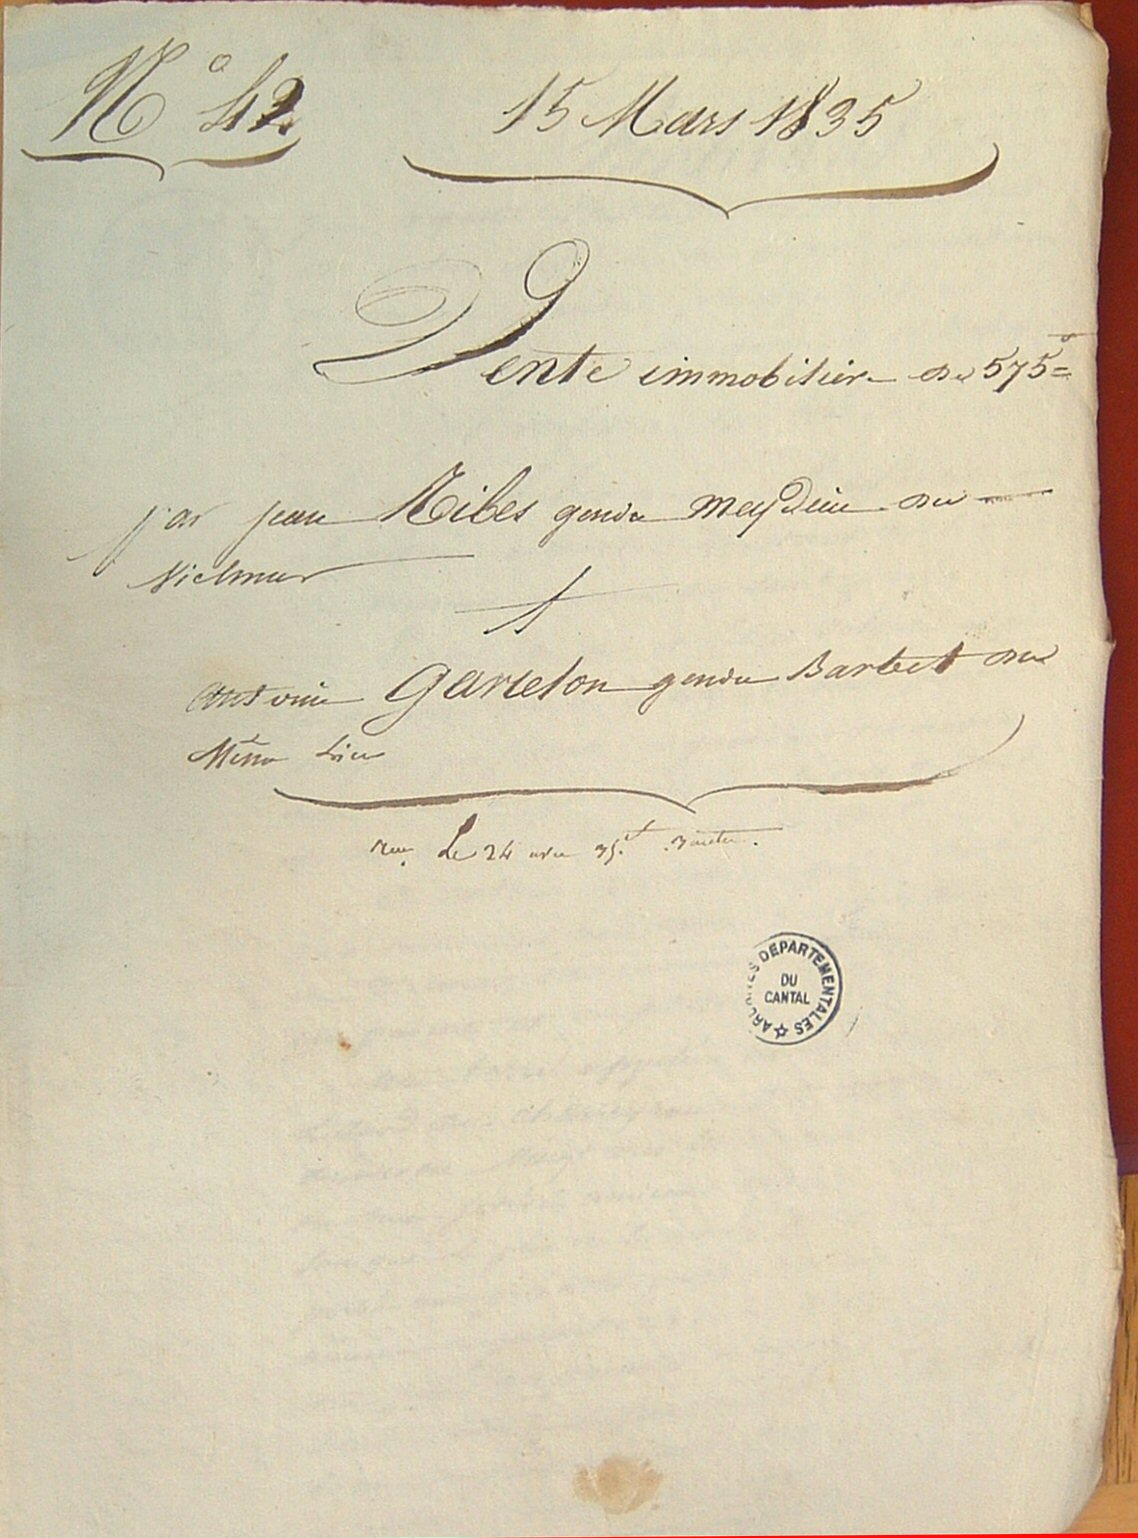 N° 42
15 Mars 1835
Vente immobilière de 575
par jean Ribes gendre meydieu du
Vielmur
A
antoine Garceton gendre Barbet du
Même Lieu
Le 24
ARCHIVES DEPARTEMENTALES
DU
CANTAL